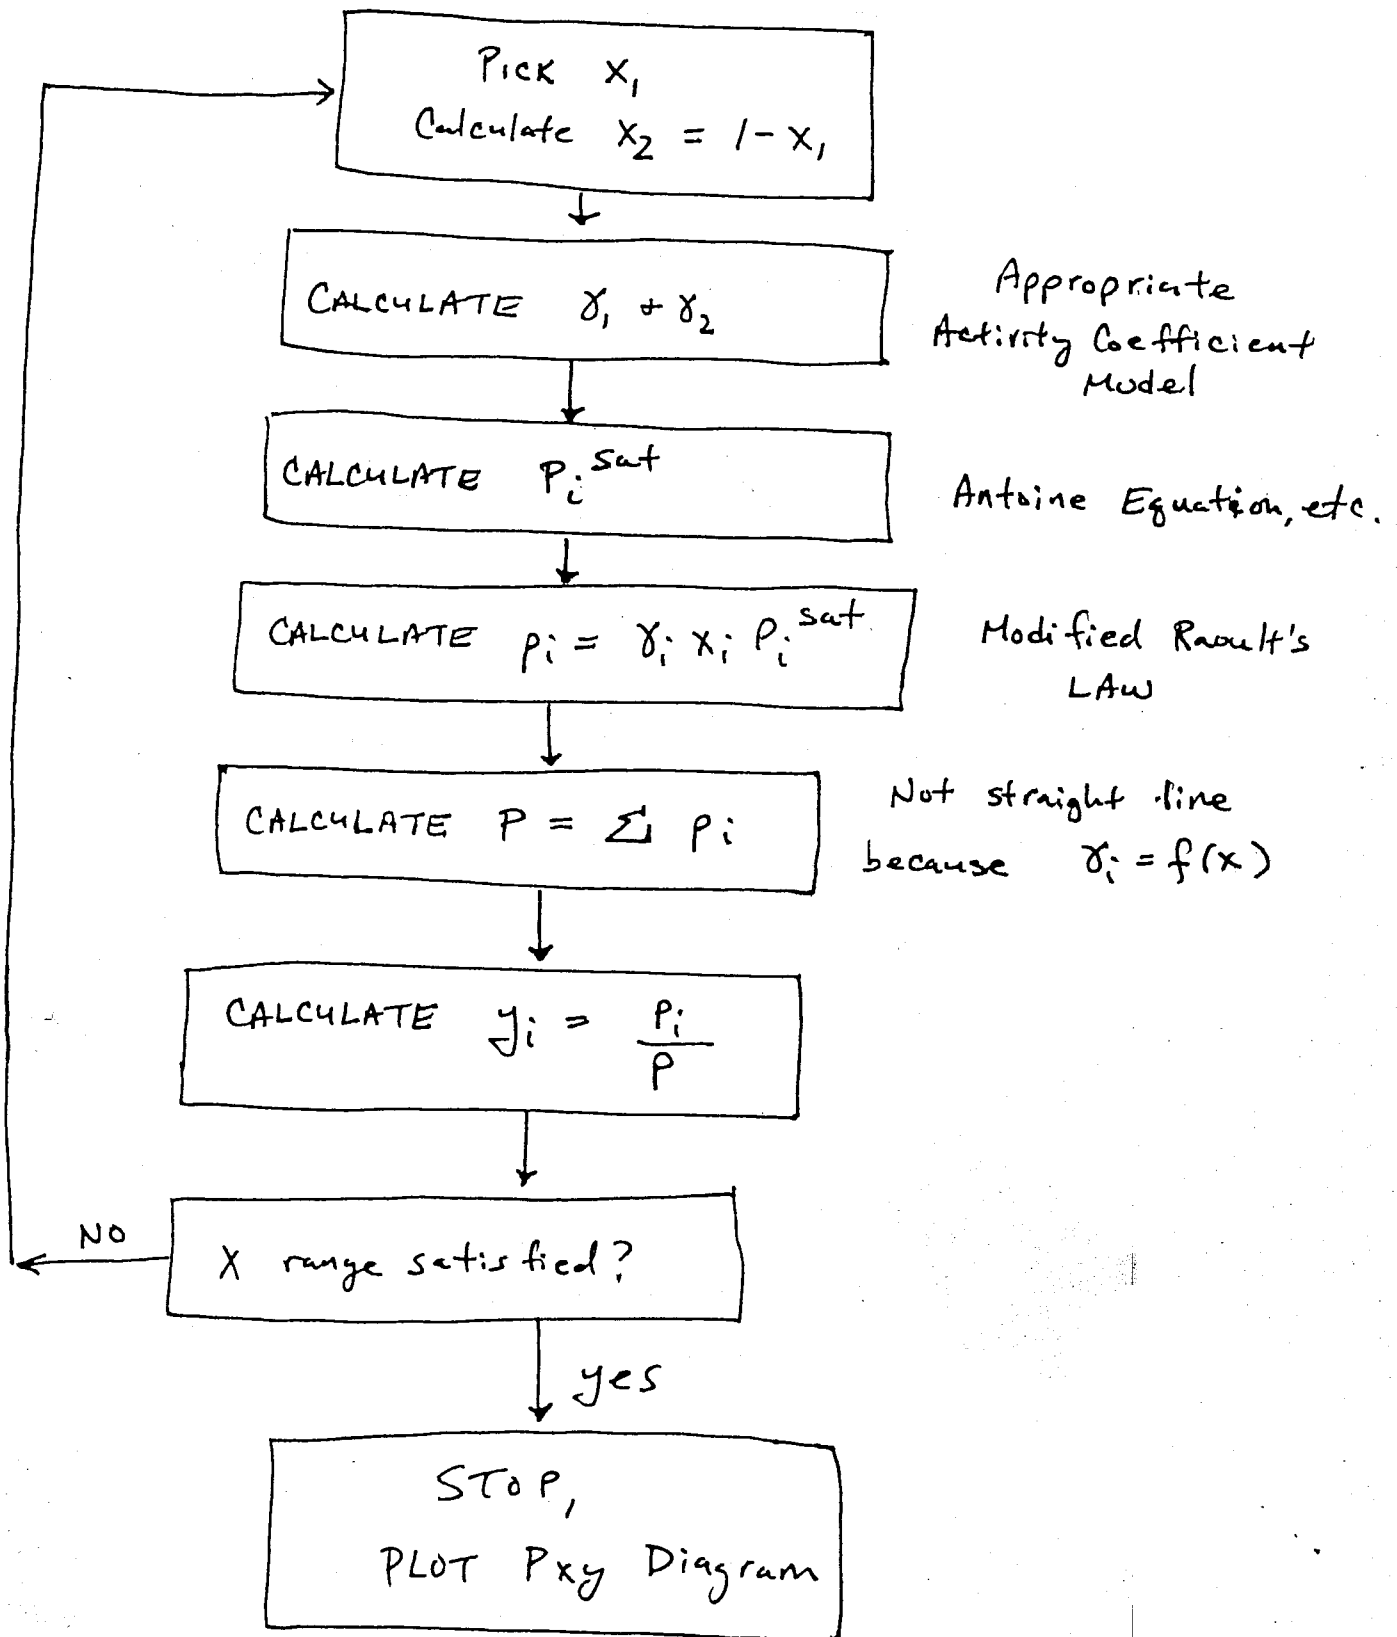 Pick x₁
Calculate x₂ = 1 - x₁
CALCULATE γ₁ + γ₂
Appropriate
Activity Coefficient
Model
CALCULATE Pᵢ^sat
Antoine Equation, etc.
CALCULATE pᵢ = γᵢ xᵢ Pᵢ^sat
Modified Raoult's
LAW
CALCULATE P = Σ pᵢ
Not straight line
because γᵢ = f(x)
CALCULATE yᵢ = pᵢ / P
NO
X range satisfied?
yes
STOP,
PLOT Pxy Diagram